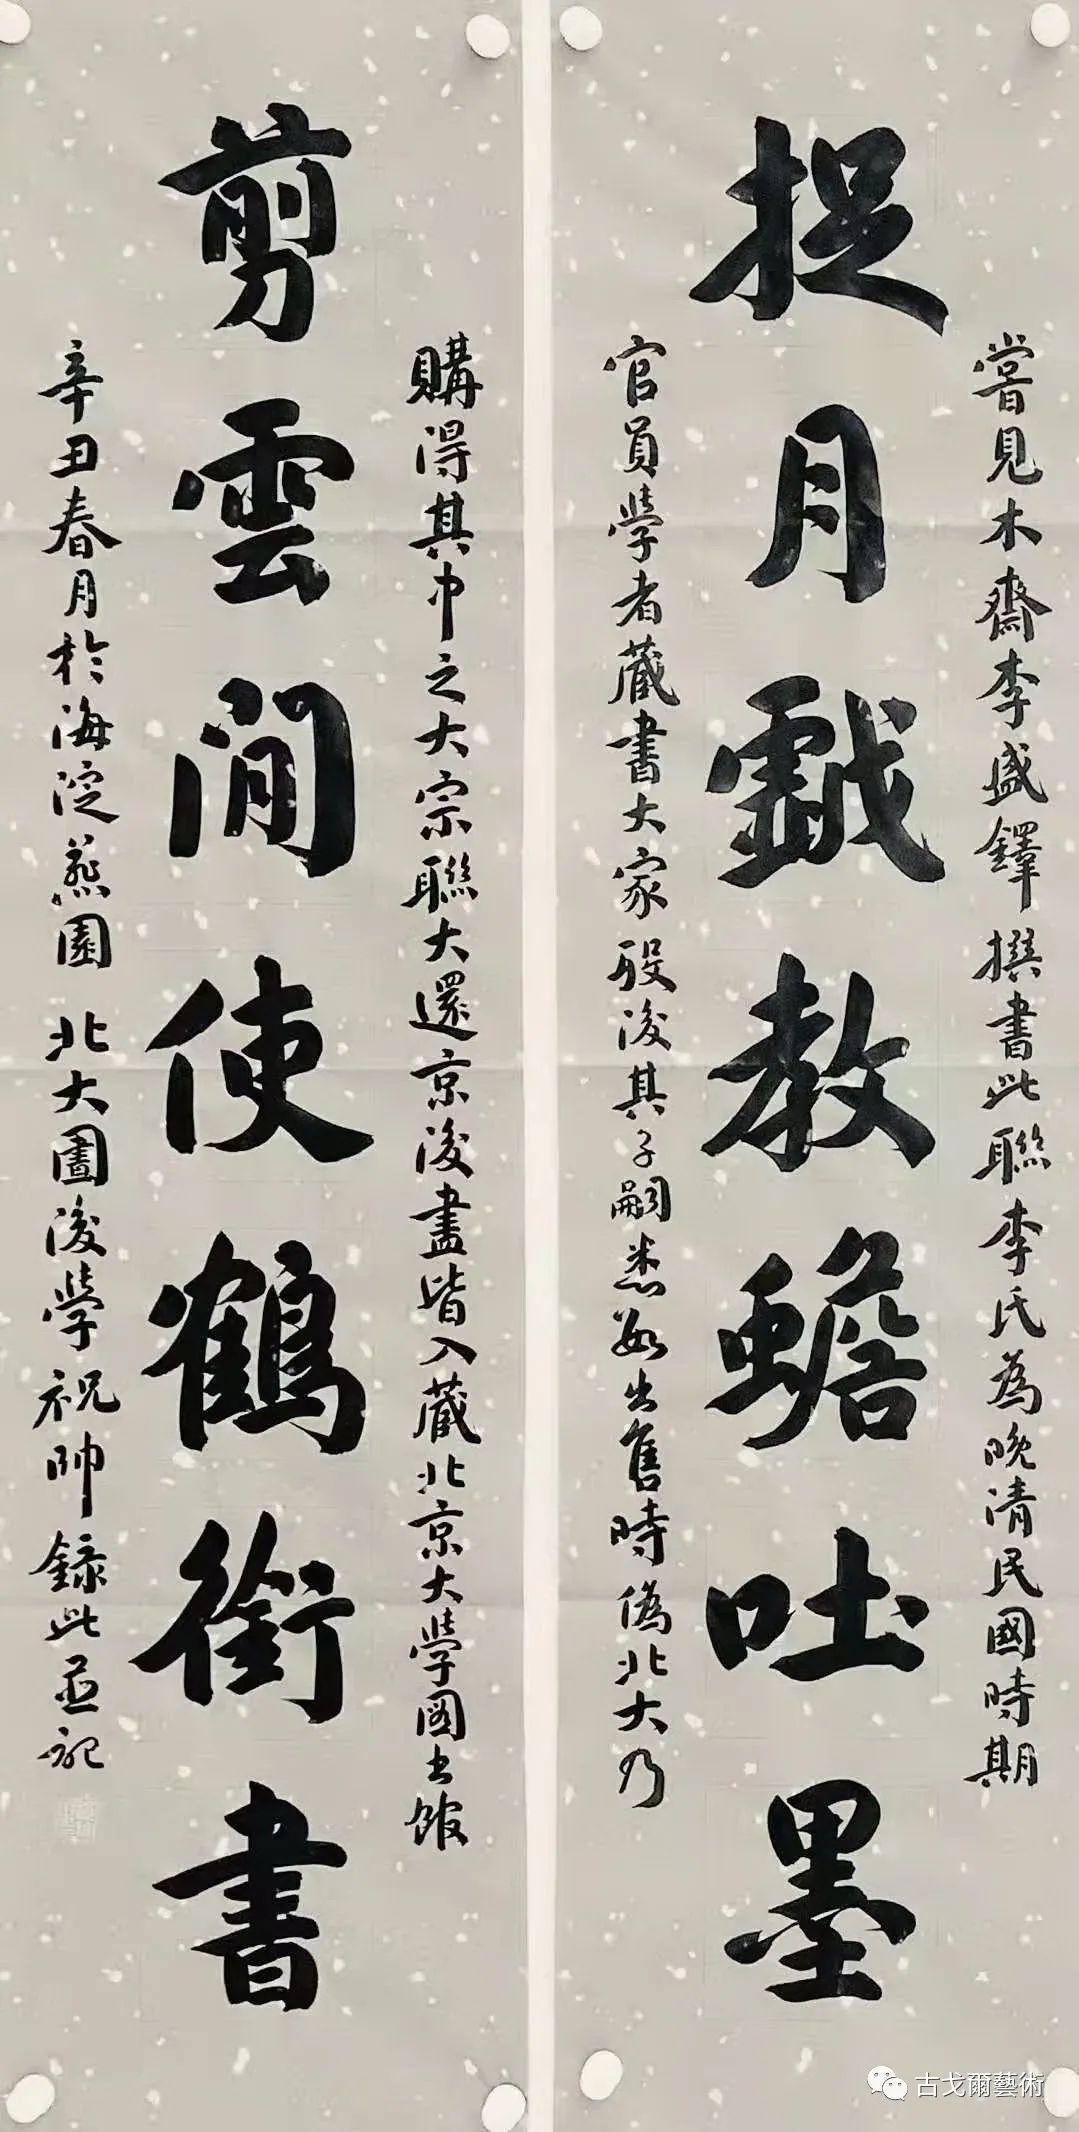 捉月戲教蟾吐墨
嘗見木齋李盛鐸撰書此聯李氏為晚清民國時期
官員學者藏書大家歿後其子嗣悉數出售時偽北大乃
剪雲閒使鶴銜書
購得其中之大宗聯大還京後盡皆入藏北京大學图书館
辛丑春月於海淀燕園 北大圖後學祝帥錄此並記
古戈爾藝術